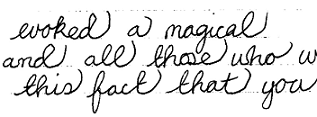 evoked a magical
and all those who w
this fact that you